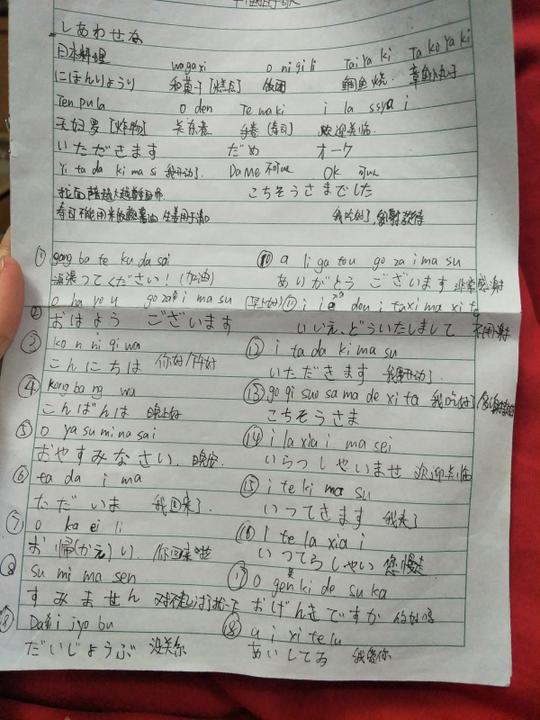 しあわせな
日本料理 wagaxi o nigili Tai Ya ki Ta ko Ya ki
にほんりょうり 和菓子[糕点] 饭团 鲷鱼烧 章鱼小丸子
Ten pula o den Te maki i la ssya i
天妇罗[炸物] 关东煮 手卷(寿司) 欢迎光临
いただきます だめ オーケ
Yi ta da ki ma si 我开动了. Da Me 不可以 OK 可以
こちそうさまでした
我吃好了,
① gang ba te ku da sai ⑩ a li ga tou go za i ma su
頑張ってください!(加油) ありがとう ございます 非常感谢
o ha yo u go zai ma su (早上好) ⑪ i i e dou i taxi ma xi te
② おはよう ございます いいえ、どういたしまして 不用谢
③ ko n ni qi wa ⑫ i ta da ki ma su
こんにちは 你好/下午好 いただきます 我开动了.
④ kong bang wa ⑬ go qi suo sa ma de xi ta 我吃好了/
こんばんは 晚上好 こちそうさま
⑤ o ya su mi na sai ⑭ i la xia i ma sei
おやすみなさい. 晚安 いらっしゃいませ 欢迎光临
⑥ ta da i ma ⑮ i te ki ma su
ただいま 我回来了 いってきます 我走了
⑦ o ka ei li ⑯ I te la xia i
お帰(かえ)り 你回来啦 いってらしゃい 您慢走
⑧ su mi ma sen ⑰ O gen ki de su ka
すみません おげんきですか 你好吗
⑨ Dai jyo bu ⑱ a i xi te lu
だいじょうぶ 没关系 あいしてる 我爱你